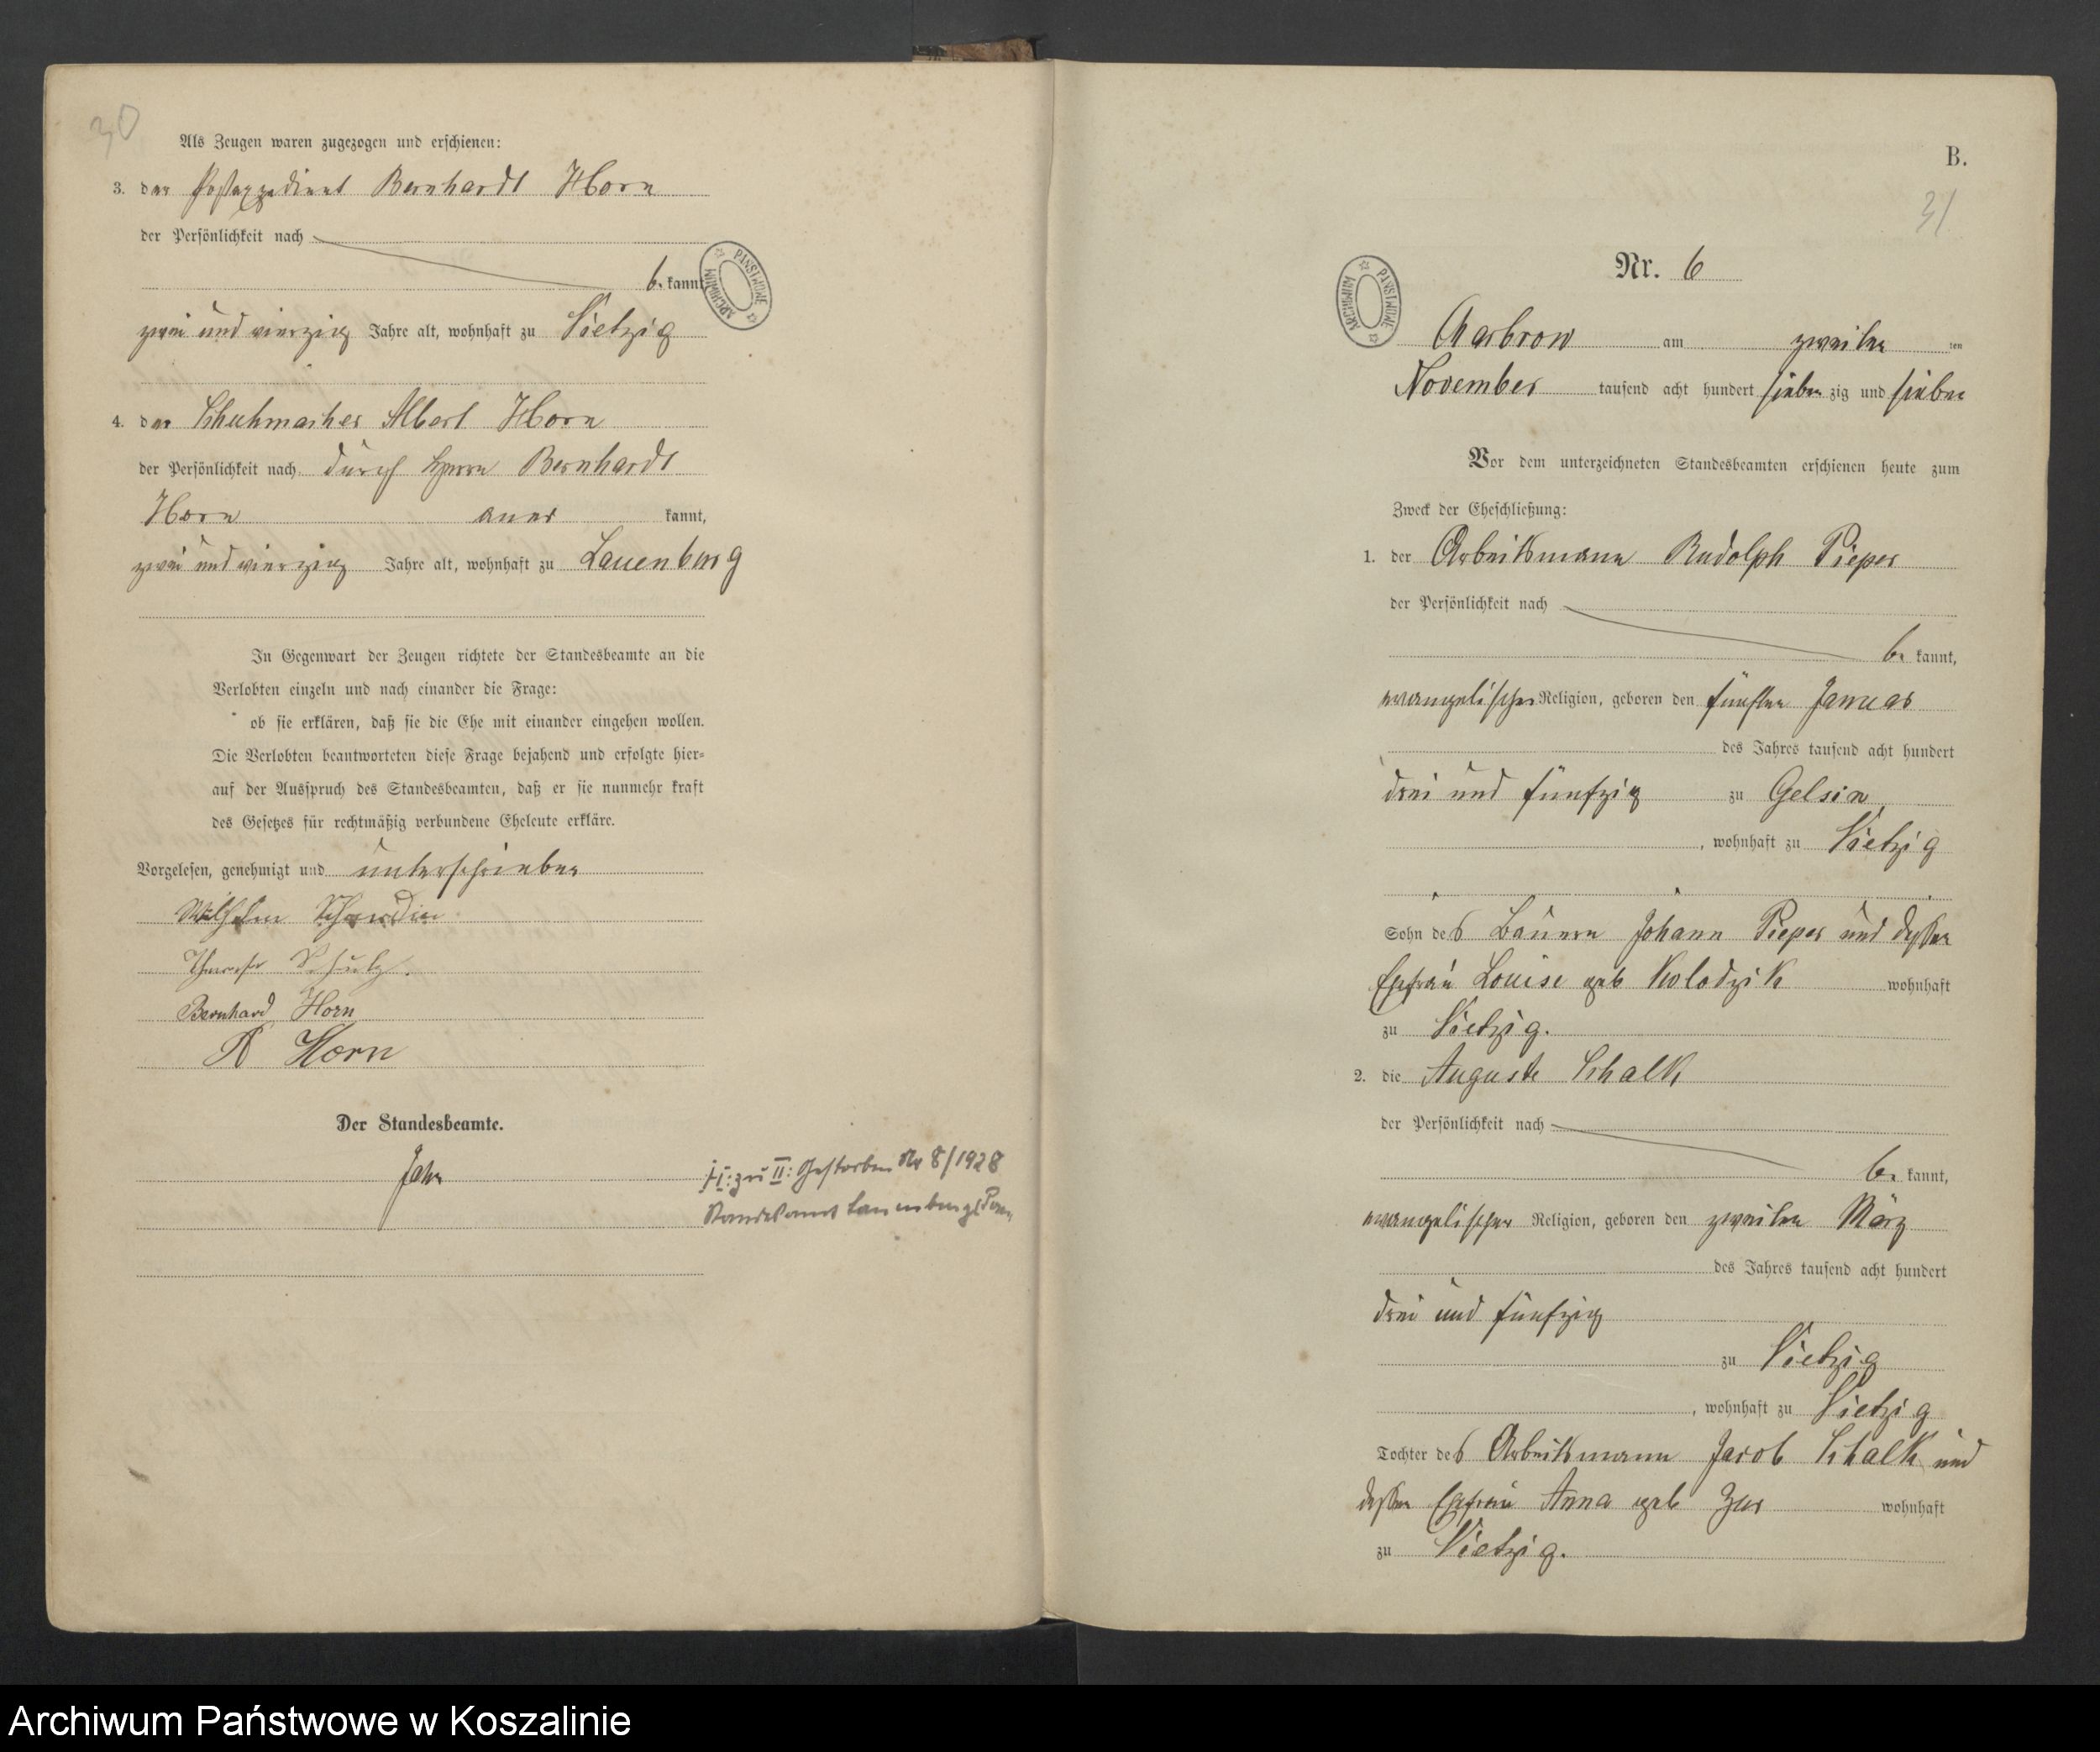 30
Als Zeugen waren zugezogen und erschienen:
3. der Postexpedient Bernhardt Horn
der Persönlichkeit nach
be kannt,
zwei und vierzig Jahre alt, wohnhaft zu Vietzig
4. der Schuhmacher Albert Horn
der Persönlichkeit nach durch Herrn Bernhardt
Horn aner kannt,
zwei und vierzig Jahre alt, wohnhaft zu Lauenburg
In Gegenwart der Zeugen richtete der Standesbeamte an die
Verlobten einzeln und nach einander die Frage:
ob sie erklären, daß sie die Ehe mit einander eingehen wollen.
Die Verlobten beantworteten diese Frage bejahend und erfolgte hier-
auf der Ausspruch des Standesbeamten, daß er sie nunmehr kraft
des Gesetzes für rechtmäßig verbundene Eheleute erkläre.
Vorgelesen, genehmigt und unterschrieben
Wilhelm
Therese Schulz.
Bernhard Horn
A Horn
Der Standesbeamte.
Jahn
zu II: Gestorben Nr 8/1928
Standesamt Lauenburg/Pom
ARCHIWUM PAŃSTWOWE
B.
31
ARCHIWUM PAŃSTWOWE
Nr. 6
Charbrow am zweiten ten
November tausend acht hundert sieben zig und sieben
Vor dem unterzeichneten Standesbeamten erschienen heute zum
Zweck der Eheschließung:
1. der Arbeitsmann Rudolph Pieper
der Persönlichkeit nach
be kannt,
evangelischer Religion, geboren den fünften Januar
des Jahres tausend acht hundert
drei und fünfzig zu Gelsin,
, wohnhaft zu Vietzig
Sohn des Bauern Johann Pieper und dessen
Ehefrau Louise geb Kolodzik wohnhaft
zu Vietzig.
2. die Auguste Schalk
der Persönlichkeit nach
be kannt,
evangelischer Religion, geboren den zweiten März
des Jahres tausend acht hundert
drei und fünfzig
zu Vietzig
, wohnhaft zu Vietzig
Tochter des Arbeitsmann Jacob Schalk und
dessen Ehefrau Anna geb wohnhaft
zu Vietzig.
Archiwum Państwowe w Koszalinie